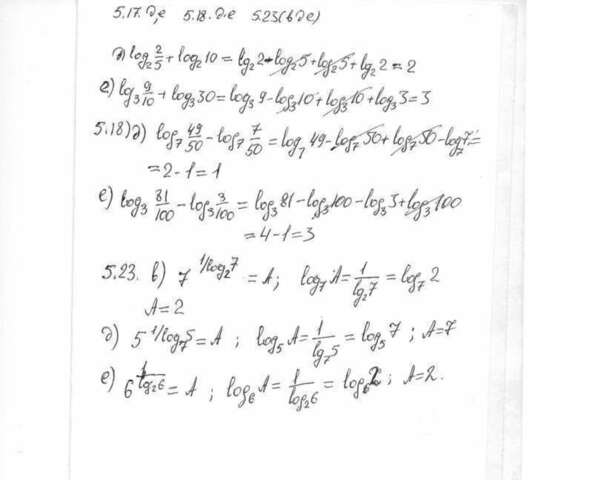 5.17. д,е 5.18. д.е 5.23(в д е)
д) log₂ 2/5 + log₂ 10 = lg₂ 2 - log₂ 5 + log₂ 5 + lg₂ 2 = 2
е) lg₃ 9/10 + log₃ 30 = log₃ 9 - log₃ 10 + log₃ 10 + log₃ 3 = 3
5.18) д) log₇ 49/50 - log₇ 7/50 = log₇ 49 - log₇ 50 + log₇ 50 - log₇ 7 =
= 2 - 1 = 1
е) log₃ 81/100 - log₃ 3/100 = log₃ 81 - log₃ 100 - log₃ 3 + log₃ 100
= 4 - 1 = 3
5.23. в) 7^(1/log₂ 7) = A; log₇ A = 1/lg₂ 7 = log₇ 2
A = 2
д) 5^(1/log₇ 5) = A; log₅ A = 1/lg₇ 5 = log₅ 7; A = 7
е) 6^(1/lg₂ 6) = A; log₆ A = 1/log₂ 6 = log₆ 2; A = 2.